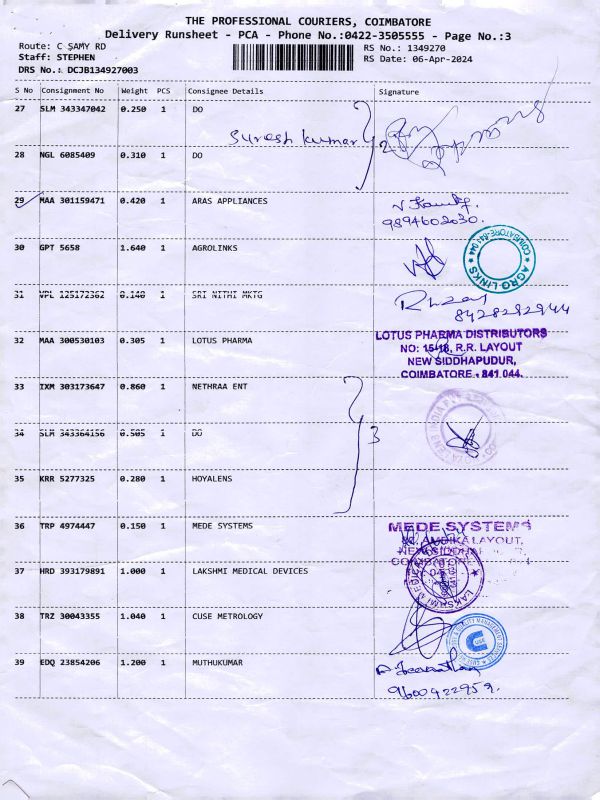 THE PROFESSIONAL COURIERS, COIMBATORE
Delivery Runsheet - PCA - Phone No.:0422-3505555 - Page No.:3
Route: C SAMY RD RS No.: 1349270
Staff: STEPHEN RS Date: 06-Apr-2024
DRS No.: DCJB134927003
S No Consignment No Weight PCS Consignee Details Signature
27 SLM 343347042 0.250 1 DO
Suresh kumar 2
28 NGL 6085409 0.310 1 DO
29 MAA 301159471 0.420 1 ARAS APPLIANCES
9894602030.
30 GPT 5658 1.640 1 AGROLINKS
AGRO-LINKS COIMBATORE-641 044
31 VPL 125172362 0.140 1 SRI NITHI MKTG
8428292944
32 MAA 300530103 0.305 1 LOTUS PHARMA
LOTUS PHARMA DISTRIBUTORS
NO: 15-18, R.R. LAYOUT
NEW SIDDHAPUDUR,
COIMBATORE - 641 044.
33 IXM 303173647 0.860 1 NETHRAA ENT
34 SLM 343364156 0.505 1 DO
3
35 KRR 5277325 0.280 1 HOYALENS
36 TRP 4974447 0.150 1 MEDE SYSTEMS
MEDE SYSTEMS
LAYOUT,
37 HRD 393179891 1.000 1 LAKSHMI MEDICAL DEVICES
LAKSHMI
38 TRZ 30043355 1.040 1 CUSE METROLOGY
39 EDQ 23854206 1.200 1 MUTHUKUMAR
9600922959.